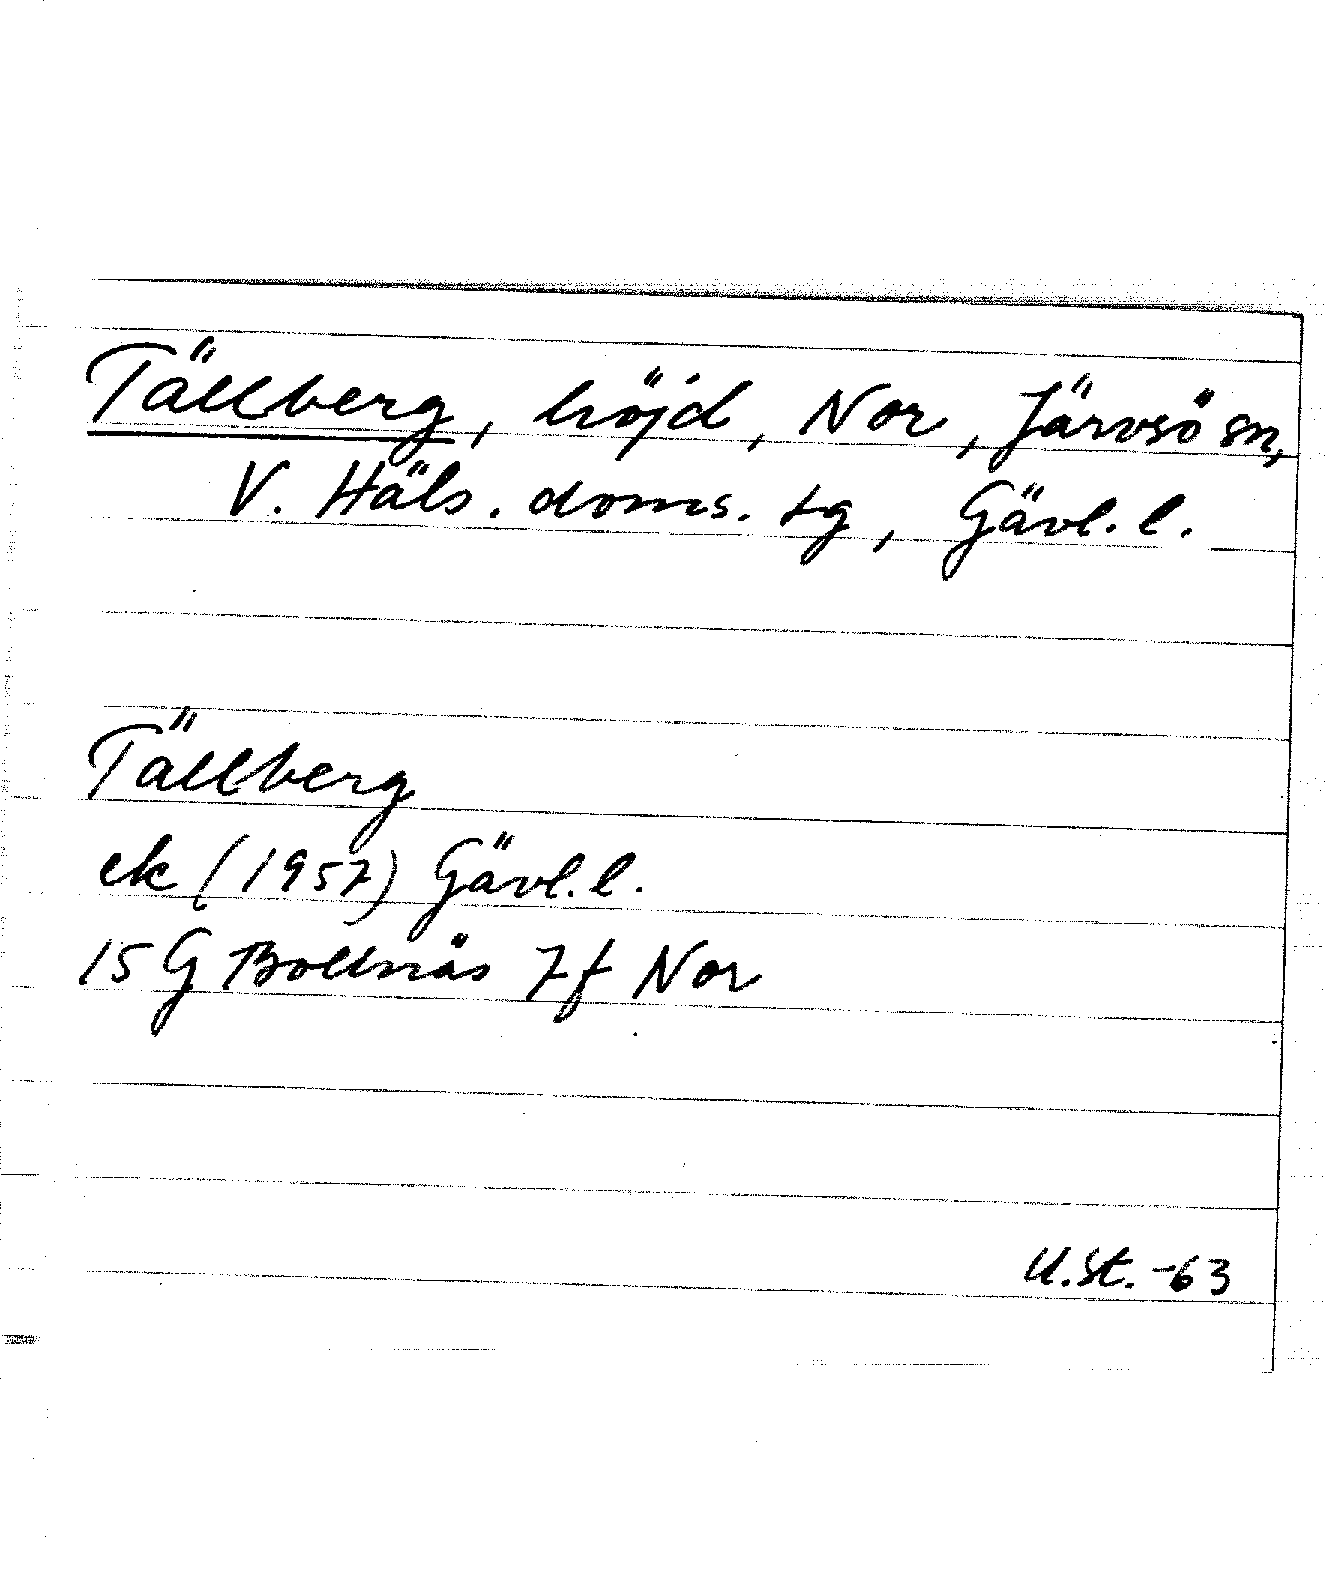 Tällberg, höjd, Nor, Järvsö sn,
V. Häls. doms. tg, Gävl. l.
Tällberg
ek (1957) Gävl. l.
15 G Bollnäs 7f Nor
U.St. -63